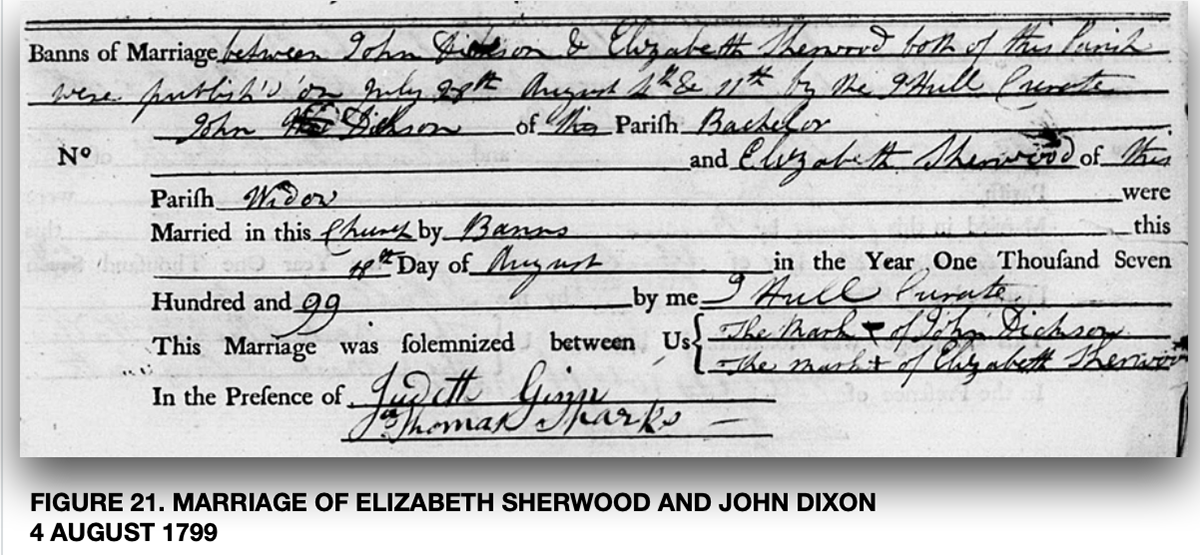 Banns of Marriage between John Dickson & Elizabeth Sherwood both of this Parish
were publish'd on July 28th August 4th & 11th by me J Hull Curate
John Dickson of this Parish Bachelor
No and Elizabeth Sherwood of this
Pariſh Widow were
Married in this Church by Banns this
Day of August in the Year One Thouſand Seven
Hundred and 99 by me J Hull Curate
This Marriage was ſolemnized between Us { The Mark + of John Dickson
The mark + of Elizabeth Sherwood
In the Preſence of Judith
Thomas Sparks
FIGURE 21. MARRIAGE OF ELIZABETH SHERWOOD AND JOHN DIXON
4 AUGUST 1799